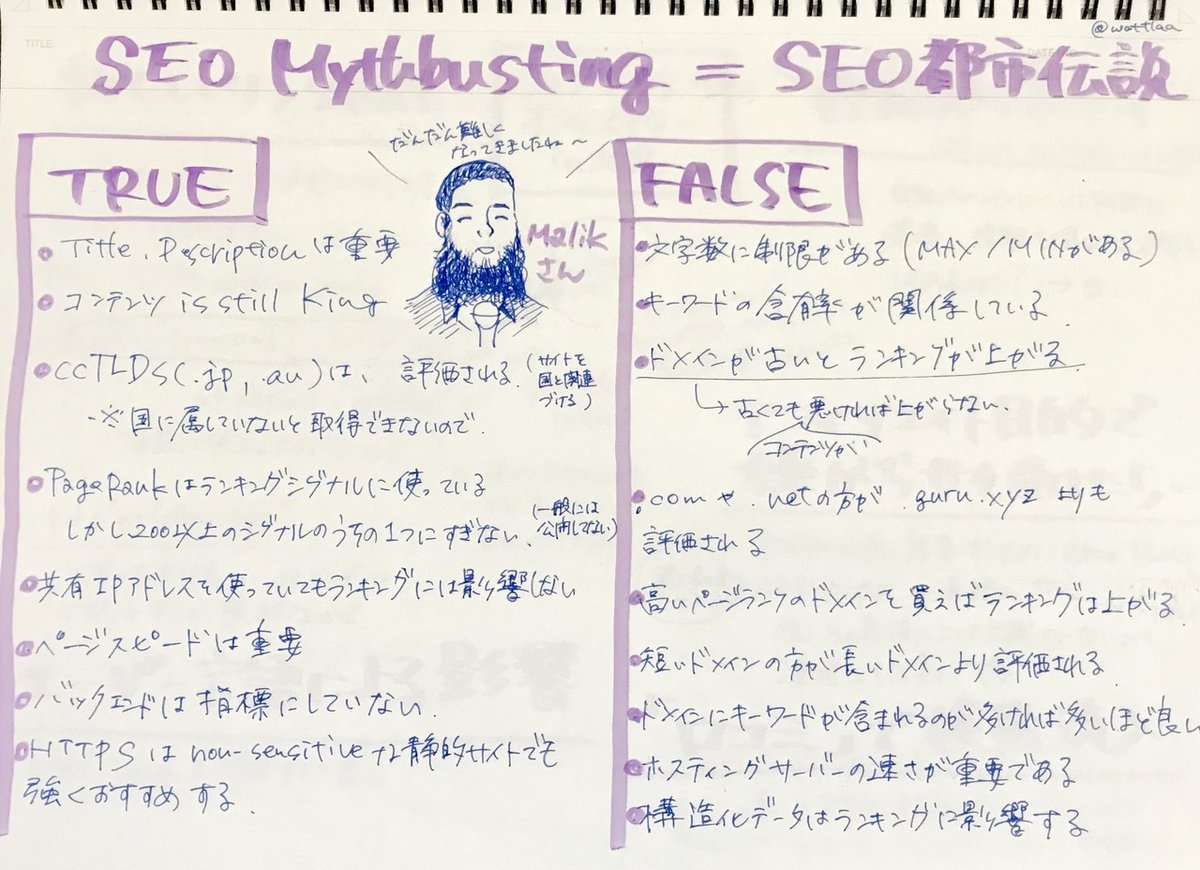 @wattlaa
TITLE
DATE
SEO Mythbusting = SEO都市伝説
だんだん難しく
なってきましたね〜
Malik
さん
TRUE
Title, Descriptionは重要
コンテンツ is still King
ccTLDs(.jp, .au)は、評価される。(サイトを
国と関連
づける)
※国に属していないと取得できないので。
PageRankはランキングシグナルに使っている
しかし、200以上のシグナルのうちの1つにすぎない。(一般には
公開してない)
共有IPアドレスを使っていてもランキングには影響しない
ページスピードは重要
バックエンドは指標にしていない。
HTTPSはnon-sensitiveな静的サイトでも
強くおすすめする。
FALSE
文字数に制限がある(MAX/MINがある)
キーワードの含有率が関係している。
ドメインが古いとランキングが上がる。
→古くても悪ければ上がらない。
コンテンツが
.comや.netの方が.guru.xyzよりも
評価される
高いページランクのドメインを買えばランキングは上がる。
短いドメインの方が長いドメインより評価される。
ドメインにキーワードが含まれるのが多ければ多いほど良い
ホスティングサーバーの速さが重要である
構造化データはランキングに影響する